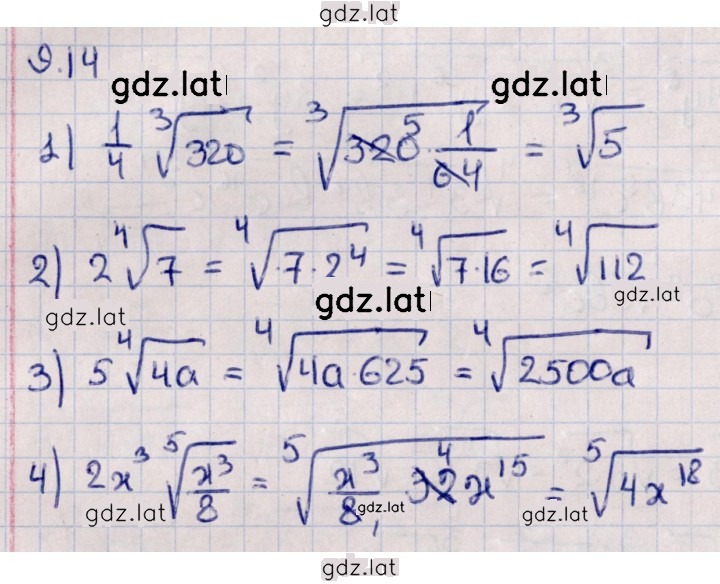 gdz.lat
9.14
gdz.lat gdz.lat
1) 1/4 ∛320 = ∛(320 5 · 1/64) = ∛5
2) 2 ∜7 = ∜(·7·2⁴) = ∜(7·16) = ∜112
gdz.lat gdz.lat gdz.lat
3) 5 ∜(4a) = ∜(4a·625) = ∜(2500a)
4) 2x³ ⁵√(x³/8) = ⁵√(x³/8, 32 4 x¹⁵) = ⁵√(4x¹⁸)
gdz.lat gdz.lat gdz.lat
gdz.lat